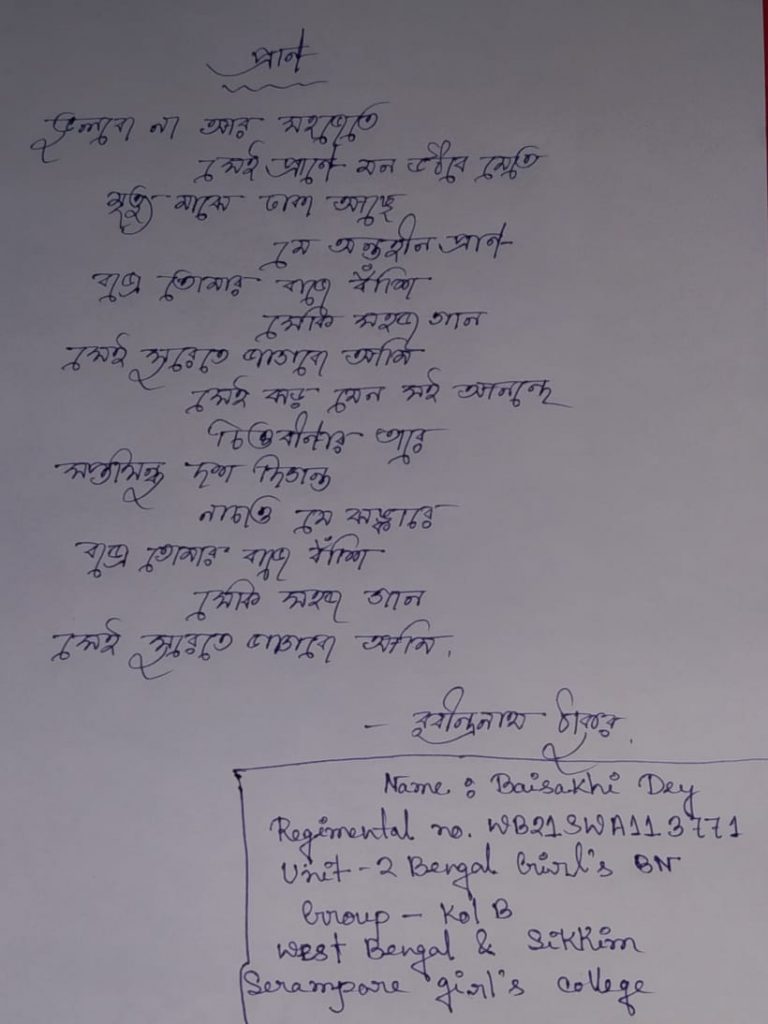 প্রাণ
ভুলবো না আর সহজেতে
সেই প্রাণে মন উঠবে মেতে
মৃত্যু মাঝে ঢাকা আছে
যে অন্তহীন প্রাণ
বজ্রে তোমার বাজে বাঁশি
সেকি সহজ গান
সেই সুরেতে জাগবো আমি
সেই ঝড় যেন সই আনন্দে
চিত্তবীণার তারে
সপ্তসিন্ধু দশ দিগন্ত
নাচাও যে ঝঙ্কারে
বজ্রে তোমার বাজে বাঁশি
সেকি সহজ গান
সেই সুরেতে জাগবো আমি.
– রবীন্দ্রনাথ ঠাকুর.
Name : Baisakhi Dey
Regimental no. WB21SWA113771
Unit - 2 Bengal Girl's BN
Group - Kol B
West Bengal & Sikkim
Serampore girl's college